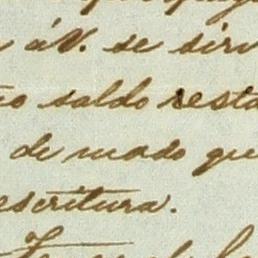 á V. se sirv
o saldo resta
de modo que
escritura.